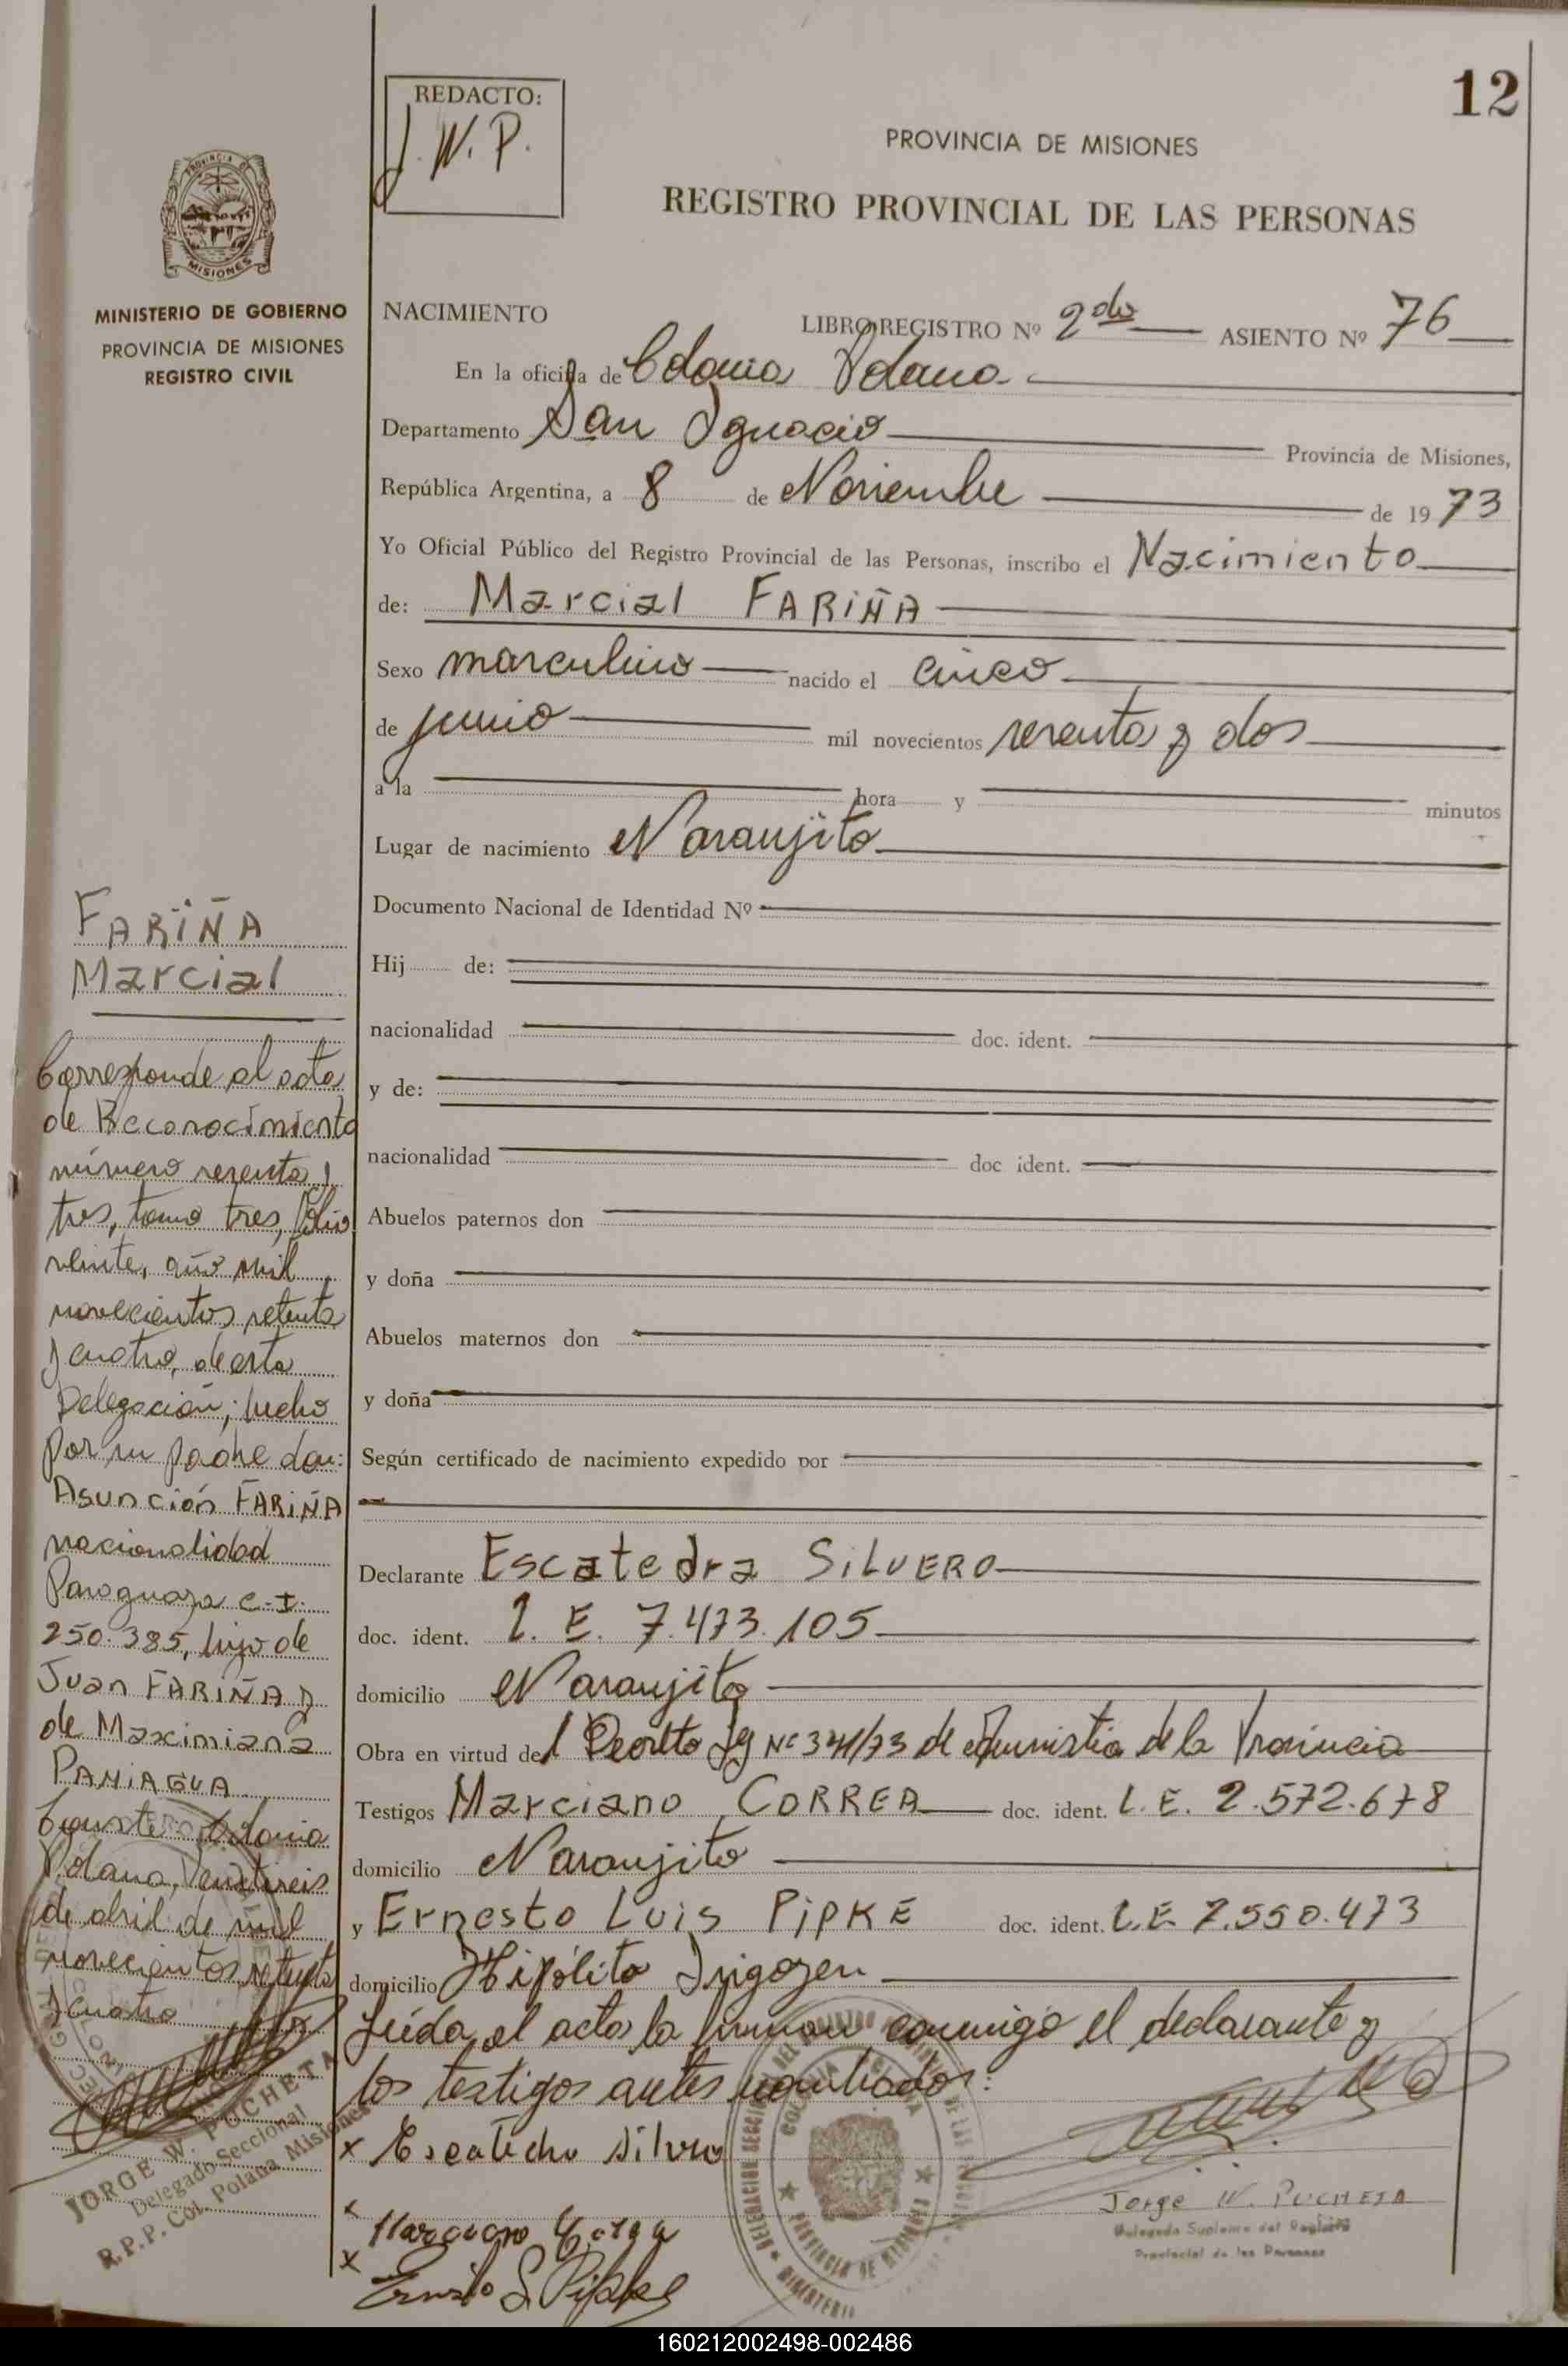 12
REDACTO:
J. W. P.
PROVINCIA DE MISIONES
REGISTRO PROVINCIAL DE LAS PERSONAS
PROVINCIA DE
MISIONES
MINISTERIO DE GOBIERNO
PROVINCIA DE MISIONES
REGISTRO CIVIL
NACIMIENTO
LIBRO REGISTRO Nº 2do ASIENTO Nº 76
En la oficina de Colonia Polana
Departamento San Ignacio Provincia de Misiones,
República Argentina, a 8 de Noviembre de 1973
Yo Oficial Público del Registro Provincial de las Personas, inscribo el Nacimiento
de: Marcial FARIÑA
Sexo masculino nacido el cinco
de junio mil novecientos sesenta y dos
a la hora y minutos
Lugar de nacimiento Naranjito
Documento Nacional de Identidad Nº
Hij de:
nacionalidad doc. ident.
y de:
nacionalidad doc ident.
Abuelos paternos don
y doña
Abuelos maternos don
y doña
Según certificado de nacimiento expedido por
Declarante Escatedra SILVERO
doc. ident. L. E. 7.473.105
domicilio Naranjito
Obra en virtud del Decreto Ley Nº 341/73 de Amnistia de la Provincia
Testigos Marciano CORREA doc. ident. L. E. 2.572.678
domicilio Naranjito
y Ernesto Luis PIPKE doc. ident. L.E. 7.550.473
domicilio Hipólito Irigoyen
Leída el acta la firman conmigo el declarante y
los testigos antes nombrados:
x Silvero
x Marciano
x Ernesto L. Pipke
Jorge W. PUCHETA
Delegado Suplente del Registro
Provincial de las Personas
COLONIA POLANA
PROVINCIA DE MISIONES
MINISTERIO
FARIÑA
Marcial
Corresponde al acta
de Reconocimiento
número sesenta y
tres, tomo tres, folio
veinte, año mil
novecientos setenta
y cuatro, de esta
Delegación; hecho
por su padre don:
Asunción FARIÑA
nacionalidad
Paraguaya C.I.
250.385, hijo de
Juan FARIÑA y
de Maximiana
PANIAGUA
Conste Colonia
Polana, veintiseis
de abril de mil
novecientos setenta
y cuatro
JORGE W. PUCHETA
Delegado Seccional
R.P.P. Col. Polana Misiones
160212002498-002486